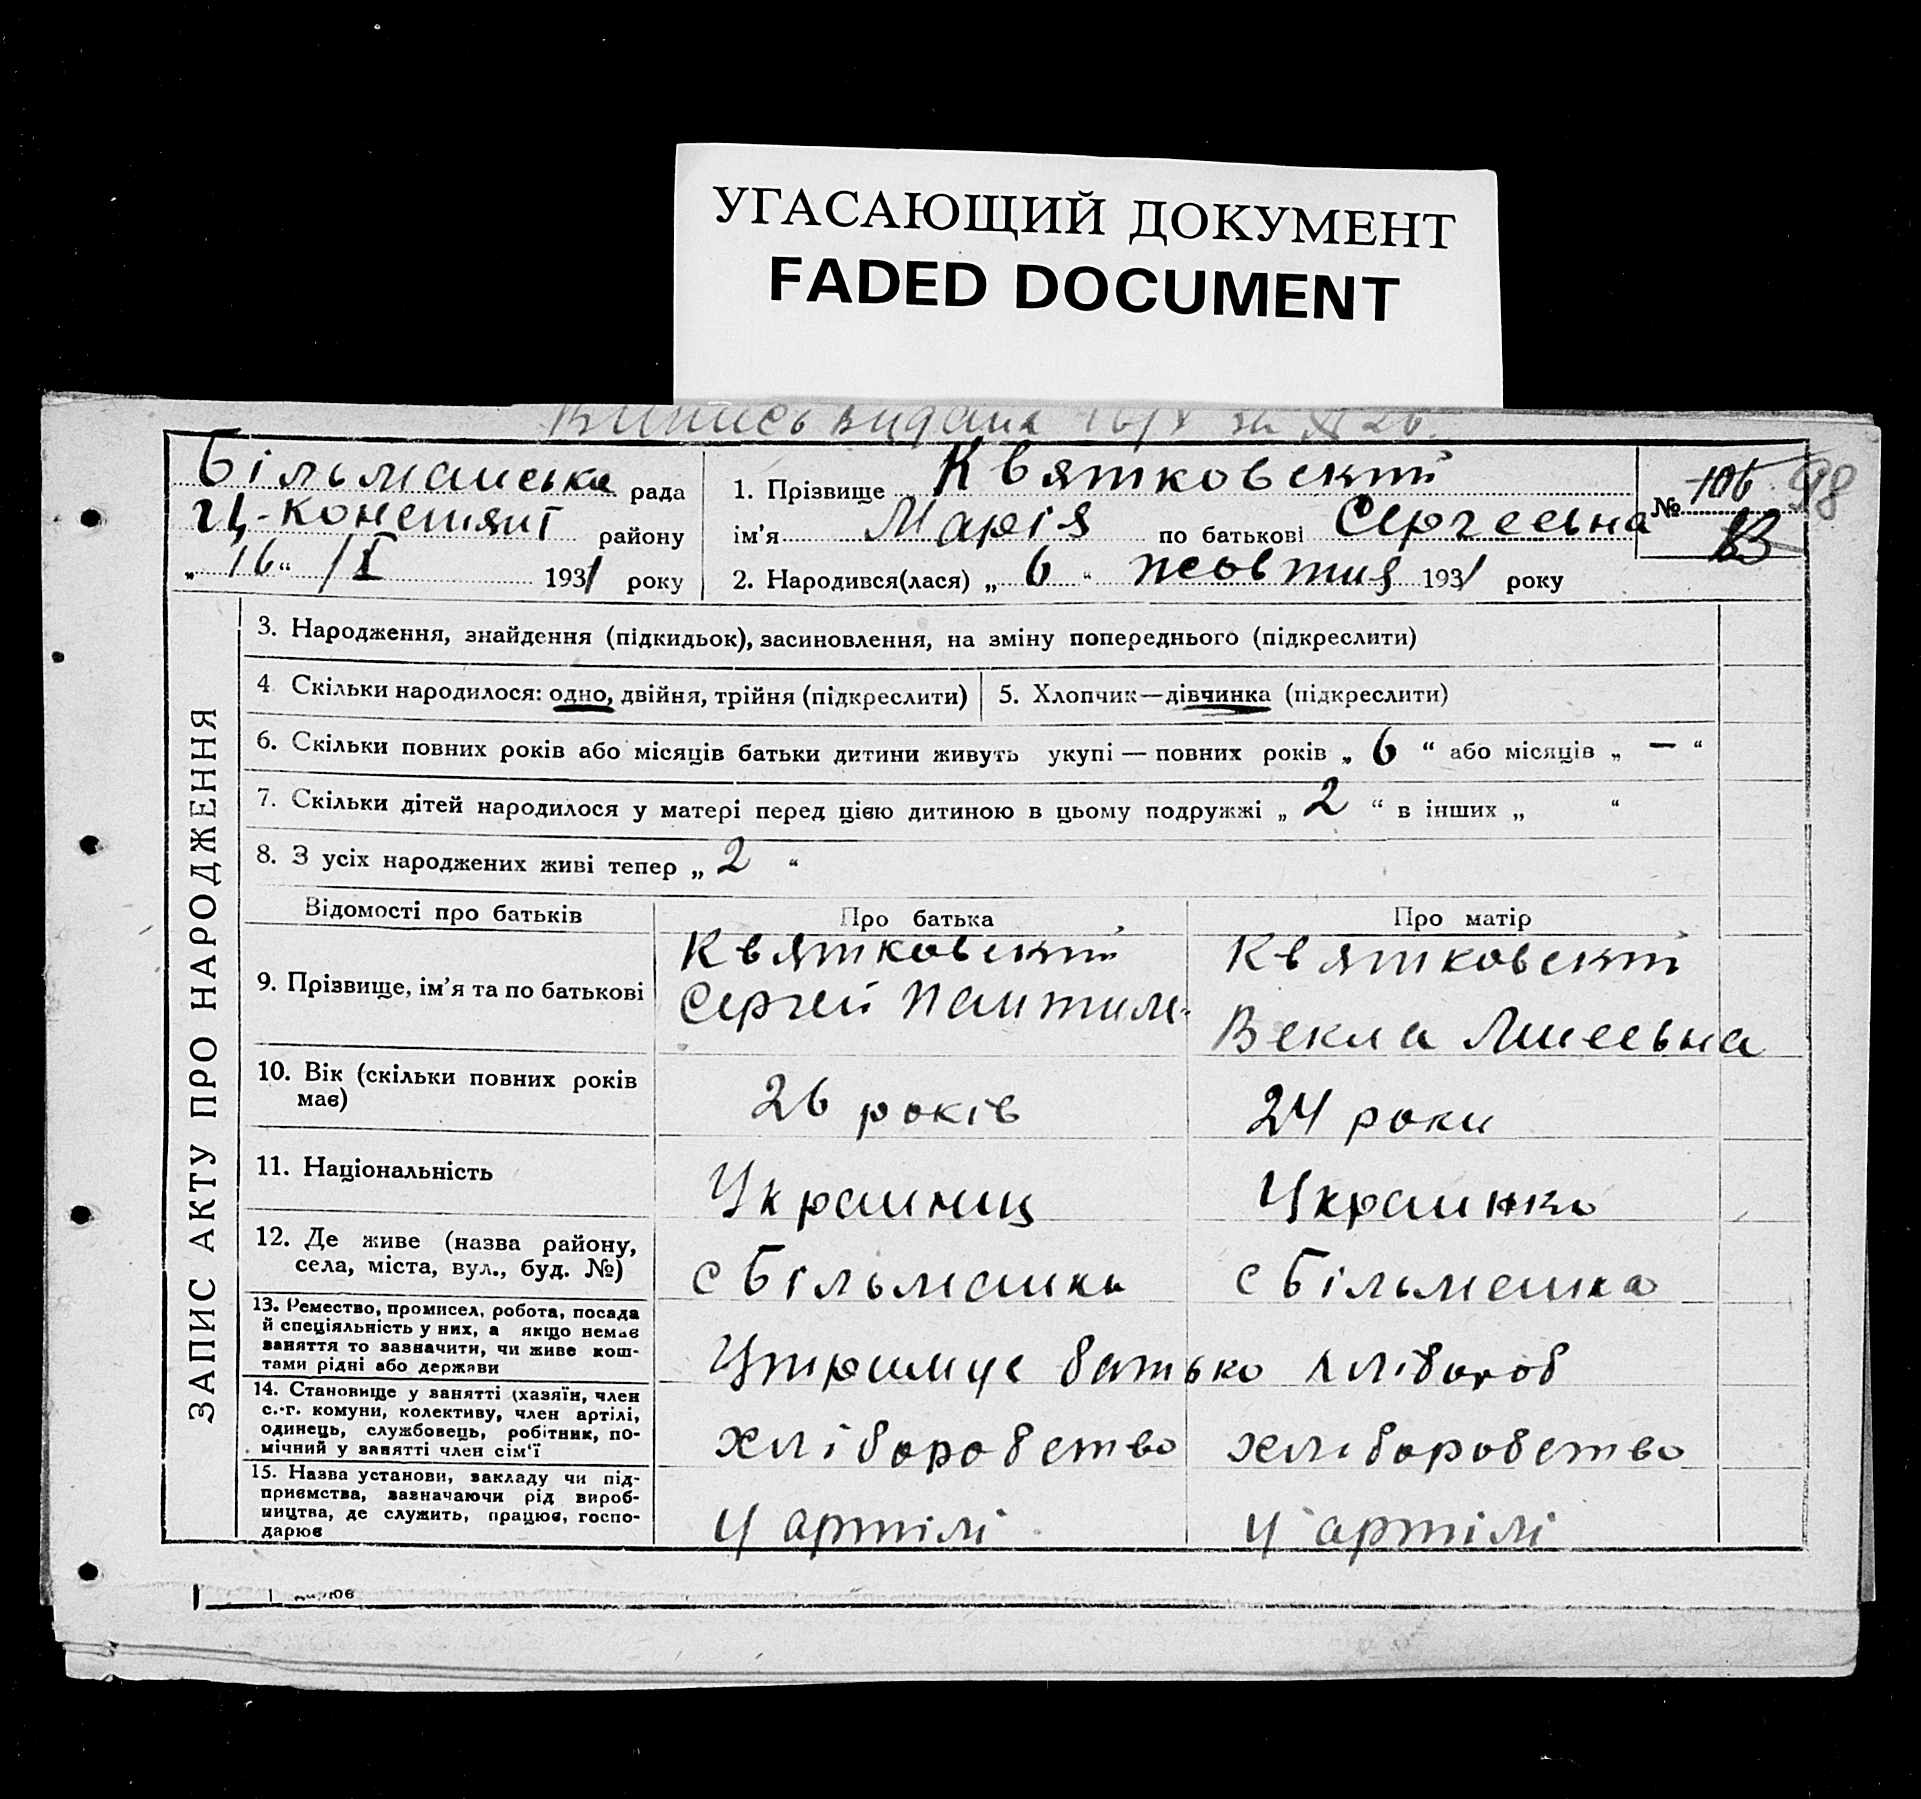 УГАСАЮЩИЙ ДОКУМЕНТ
FADED DOCUMENT
Випись видана 16/X за № 26.
Більманська рада
районy
„16“ /X 1931 року
1. Прізвище Квятковскій
ім’я Марія по батькові Сергеевна
2. Народився(лася) „6“ жовтня 1931 року
№ 106 98
ЗАПИС АКТУ ПРО НАРОДЖЕННЯ
3. Народження, знайдення (підкидьок), засиновлення, на зміну попереднього (підкреслити)
4 Скільки народилося: одно, двійня, трійня (підкреслити)
5. Хлопчик—дівчинка (підкреслити)
6. Скільки повних років або місяців батьки дитини живуть укупі — повних років „6“ або місяців „—“
7. Скільки дітей народилося у матері перед цією дитиною в цьому подружжі „2“ в інших „ “
8. З усіх народжених живі тепер „2“
Відомості про батьків Про батька Про матір
9. Прізвище, ім’я та по батькові
Квятковский
Сергей Пантилм-
Квятковский
Векла
10. Вік (скільки повних років
має)
26 років
24 роки
11. Національність
Украинец
Украинка
12. Де живе (назва району,
села, міста, вул., буд. №)
с Більманка
с Більманка
13. Ремество, промисел, робота, посада
й спеціяльність у них, а якщо немає
заняття то зазначити, чи живе кош-
тами рідні або держави
Утримує батько хлібороб
14. Становище у занятті (хазяїн, член
с.-г. комуни, колективу, член артілі,
одинець, службовець, робітник, по-
мічний у занятті член сім'ї
хліборобство
хліборобство
15. Назва установи, закладу чи під-
приємства, зазначаючи рід вироб-
ництва, де служить, працює, госпо-
дарює
у артілі
у артілі